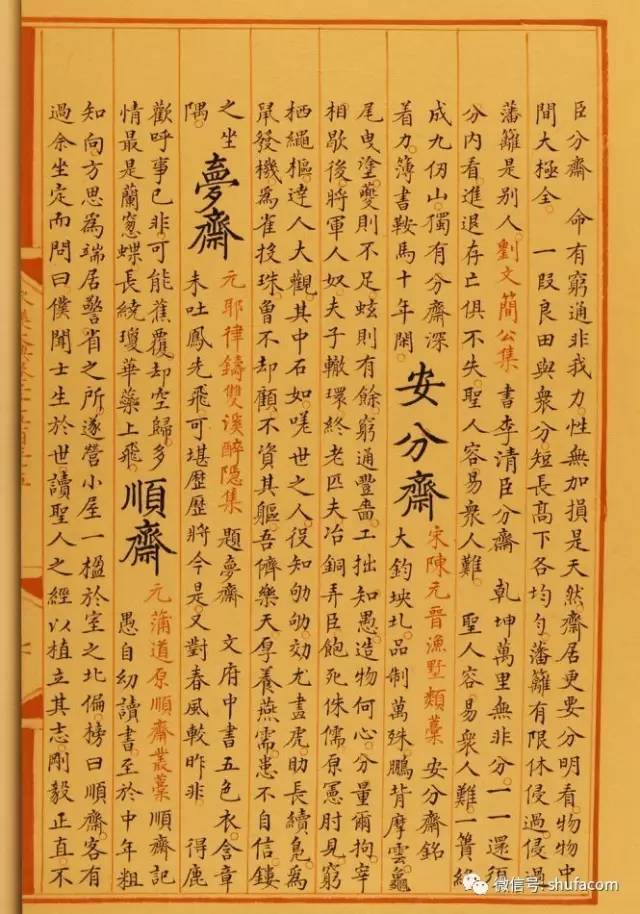 臣分齋 命有窮通非我力性無加損是天然齋居更要分明看物物中
間大極全 一段良田與衆分短長髙下各均勻藩籬有限休侵過侵過
藩籬是别人劉文簡公集 書李清臣分齋 乾坤萬里無非分一一還須
分内看進退存亡俱不失聖人容易衆人難 聖人容易衆人難一簣終
成九仞山獨有分齋深
着力簿書鞍馬十年閑
安分齋
宋陳元晉漁墅類藁 安分齋銘
大鈞坱圠品制萬殊鵬背摩雲龜
尾曳塗夔則不足蚿則有餘窮通豐嗇工拙知愚造物何心分量爾拘宰
相歇後將軍人奴夫子轍環終老匹夫冶銅弄臣飽死侏儒原憲肘見窮
栖繩樞達人大觀其中石如嗟世之人役知劬劬効尤畫虎助長續鳧爲
鼠發機爲雀投珠曾不却顧不資其軀吾儕樂天厚養燕濡患不自信鏤
之坐
隅
夢齋
元耶律鑄雙溪醉隱集 題夢齋 文府中書五色衣含章
未吐鳳先飛可堪歷歷將今是又對春風較昨非 得鹿
歡呼事已非可能蕉覆却空歸多
情最是蘭窓蝶長繞瓊華蘂上飛
順齋
元蒲道原順齋叢藁 順齋記
愚自幼讀書至於中年粗
知向方思爲端居警省之所遂營小屋一楹於室之北偏榜曰順齋客有
過余坐定而問曰僕聞士生於世讀聖人之經以植立其志剛毅正直不
微信号: shufacom